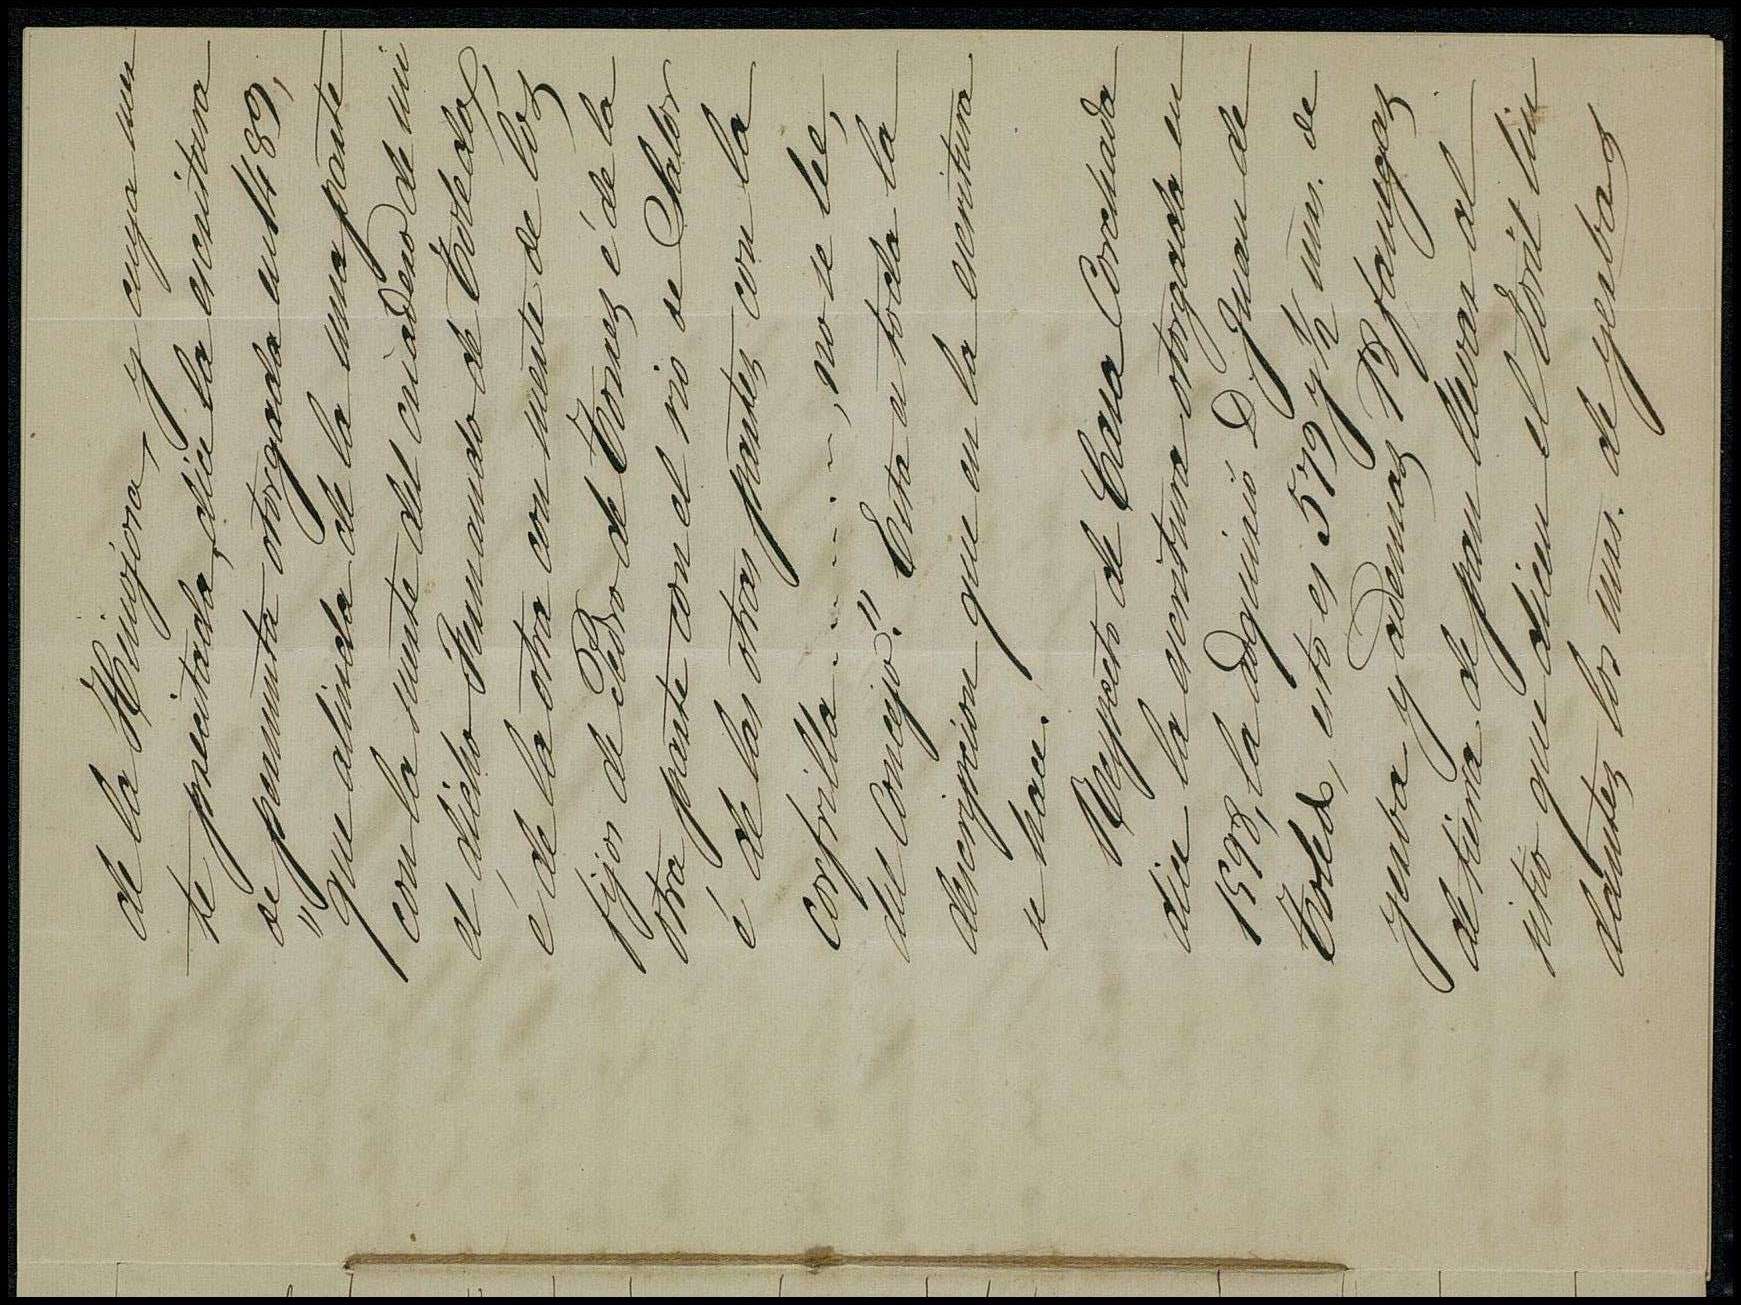 de la Hinojora, y cuya suer
te precitada, dice la escritura
de permuta otorgada en 1489,
"que alinda de la una parte
con la suerte del criadero de mi
el dicho Fernando de Toledo,
é de la otra con suerte de los
fijos de Pedro de Torres é de la
otra parte con el rio de Salor
é de las otras partes con la
costrilla - - - - - -, no se lée,
del Concejo." Esta es toda la
descripcion que en la escritura
se hace.
Respecto de Casa Corchada
dice la escritura otorgada en
1598, la adquirió D. Juan de
Toledo, esto es 579 y ½ mrs. de
yerba y ademas 13 fanegas
de tierra de pan llevar al
sitio que dicen el Toril lin
dantes los mrs. de yerbas